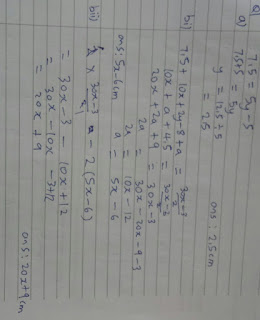 a) 7.5 = 5y - 5
7.5+5 = 5y
y = 12.5 ÷ 5
= 2.5
ans: 2.5cm
bi) 7.5 + 10x + 2y - 8 + a = 30x-3/2
10x + a + 4.5 = 30x-3/2
20x + 2a + 9 = 30x - 3
2a = 30x - 20x - 9 - 3
2a = 10x - 12
a = 5x - 6
ans: 5x-6cm
bii) 2 × 30x-3/2 - 2(5x-6)
= 30x - 3 - 10x + 12
= 30x - 10x - 3 + 12
= 20x + 9
ans: 20x+9cm